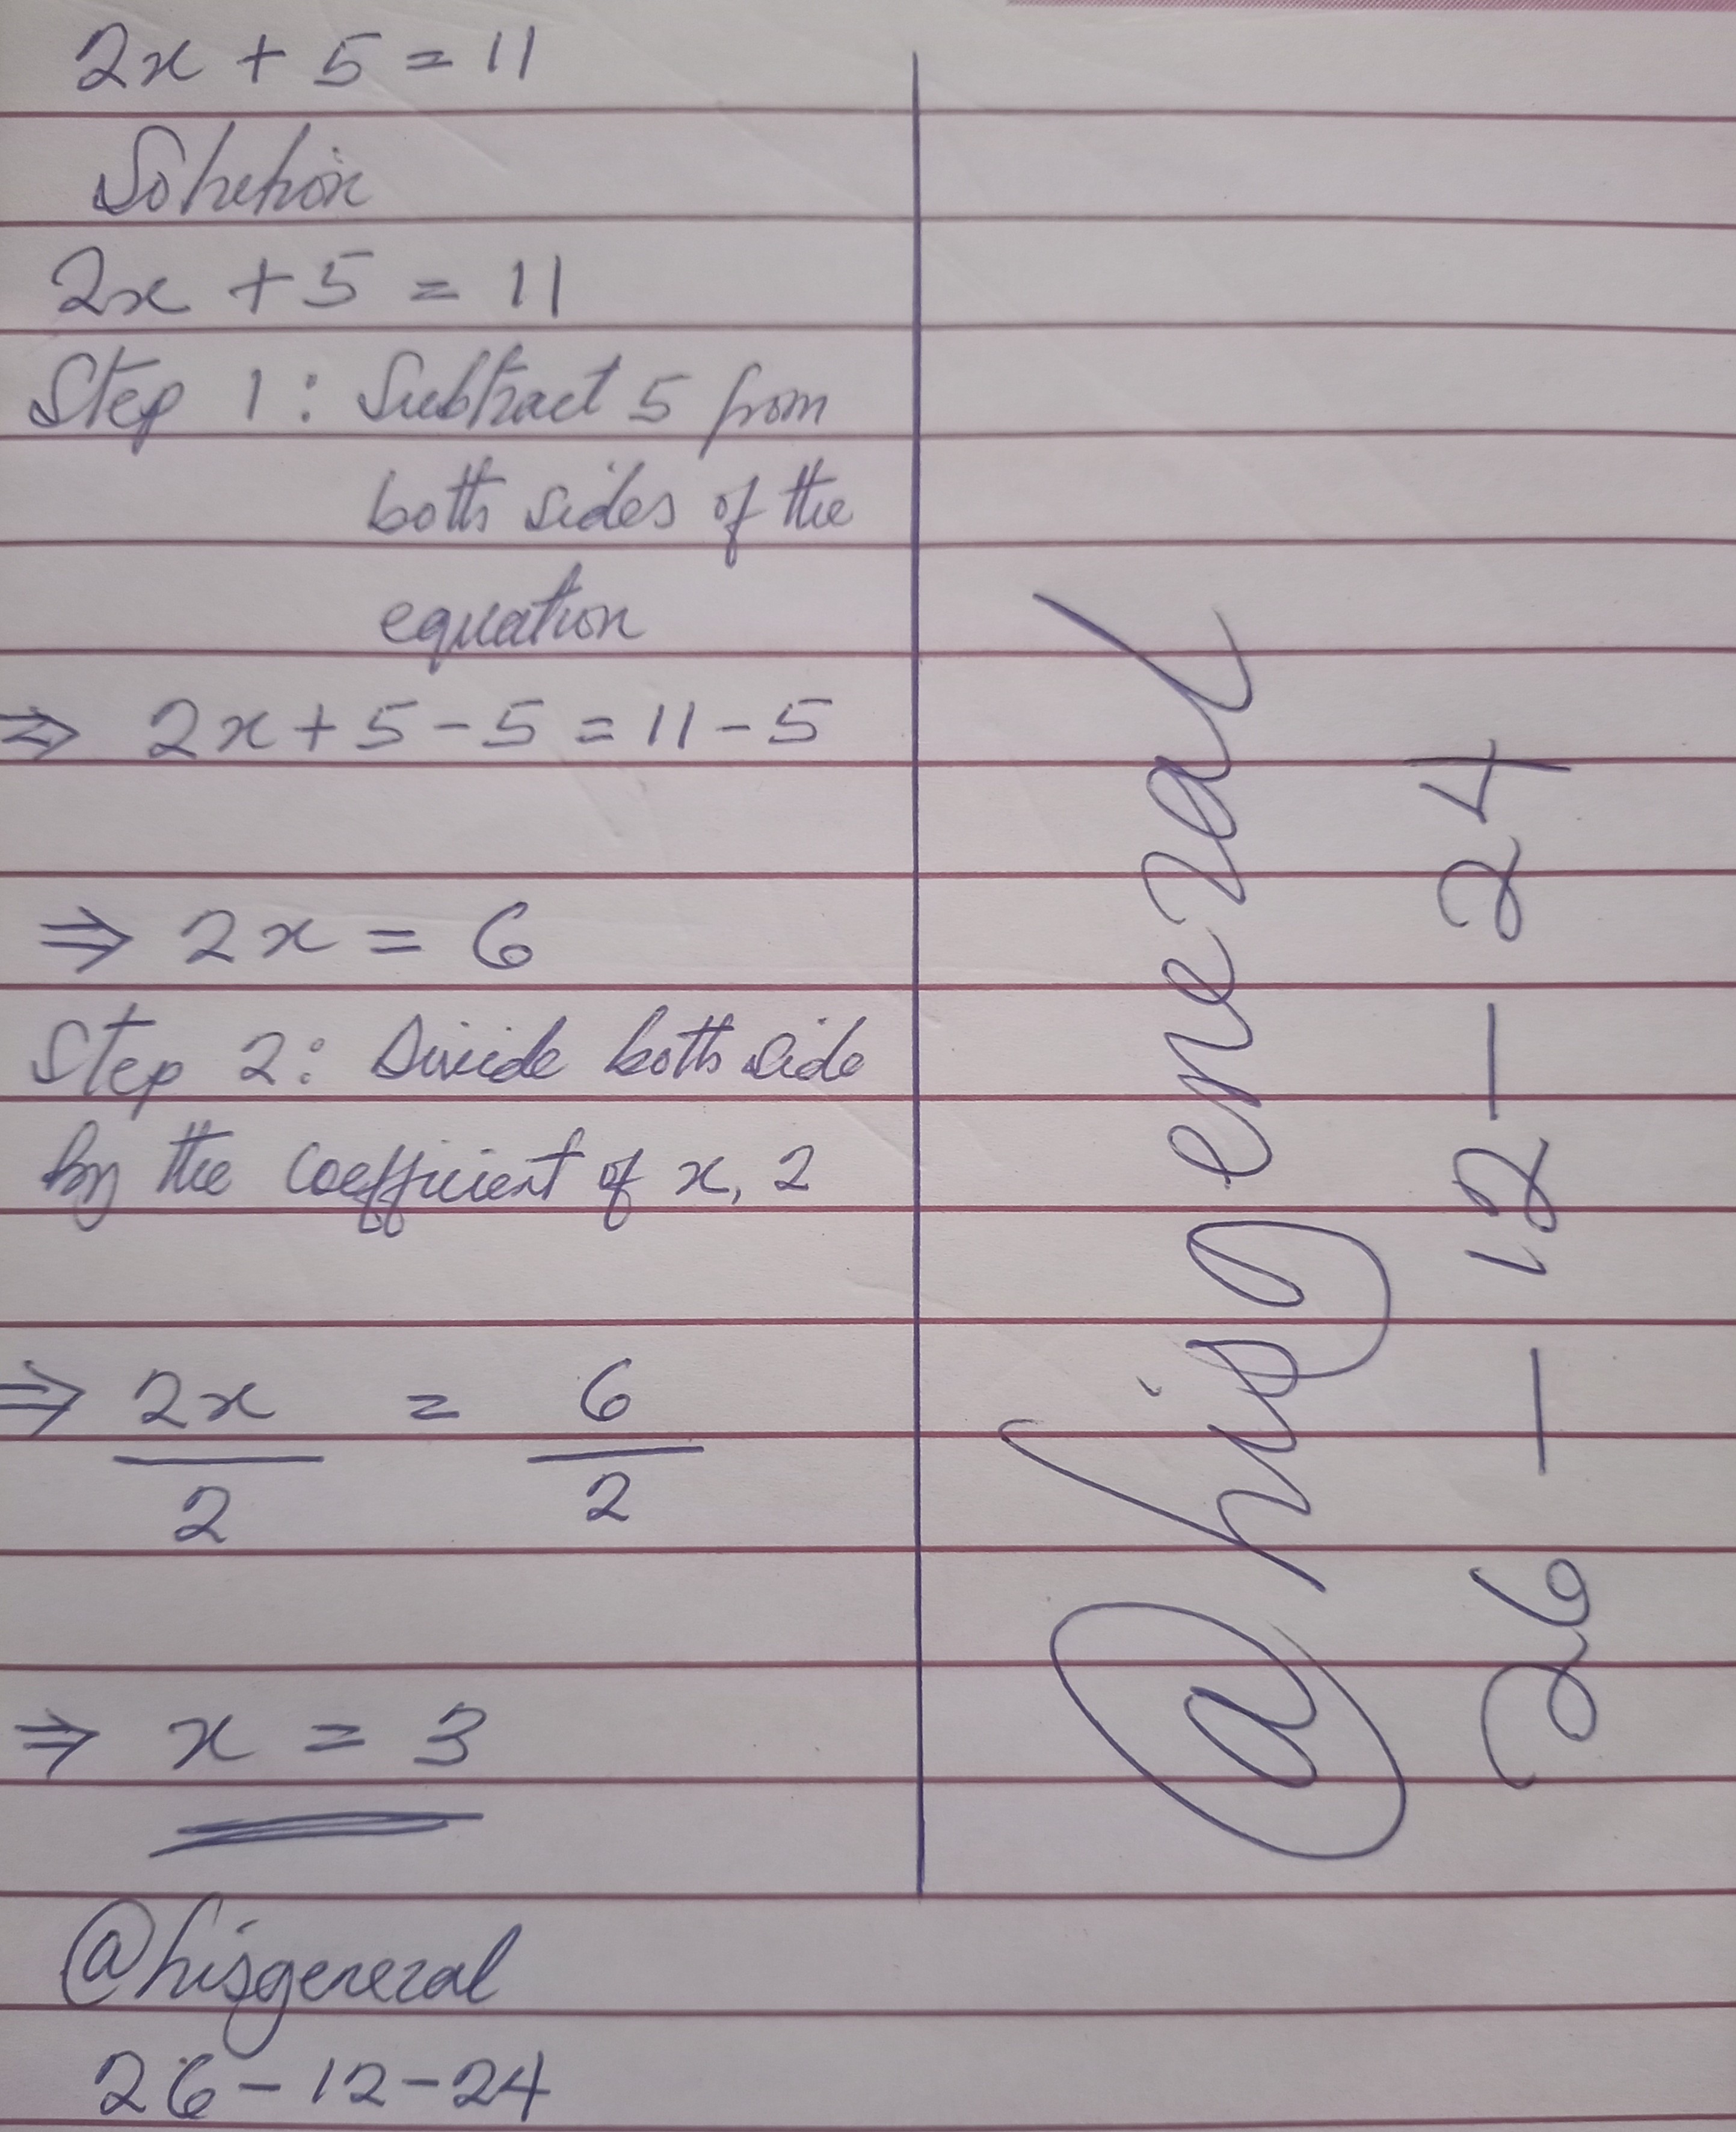 2x + 5 = 11
Solution
2x + 5 = 11
Step 1: Subtract 5 from
both sides of the
equation
⇒ 2x + 5 - 5 = 11 - 5
⇒ 2x = 6
Step 2: Divide both side
by the coefficient of x, 2
⇒ 2x/2 = 6/2
⇒ x = 3
@hisgeneral
26-12-24
@hisgeneral
26-12-24